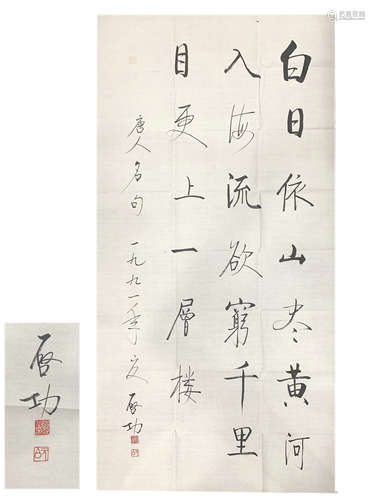 白日依山尽黄河
入海流欲窮千里
目更上一層楼
唐人名句 一九九一年夏 启功
启功